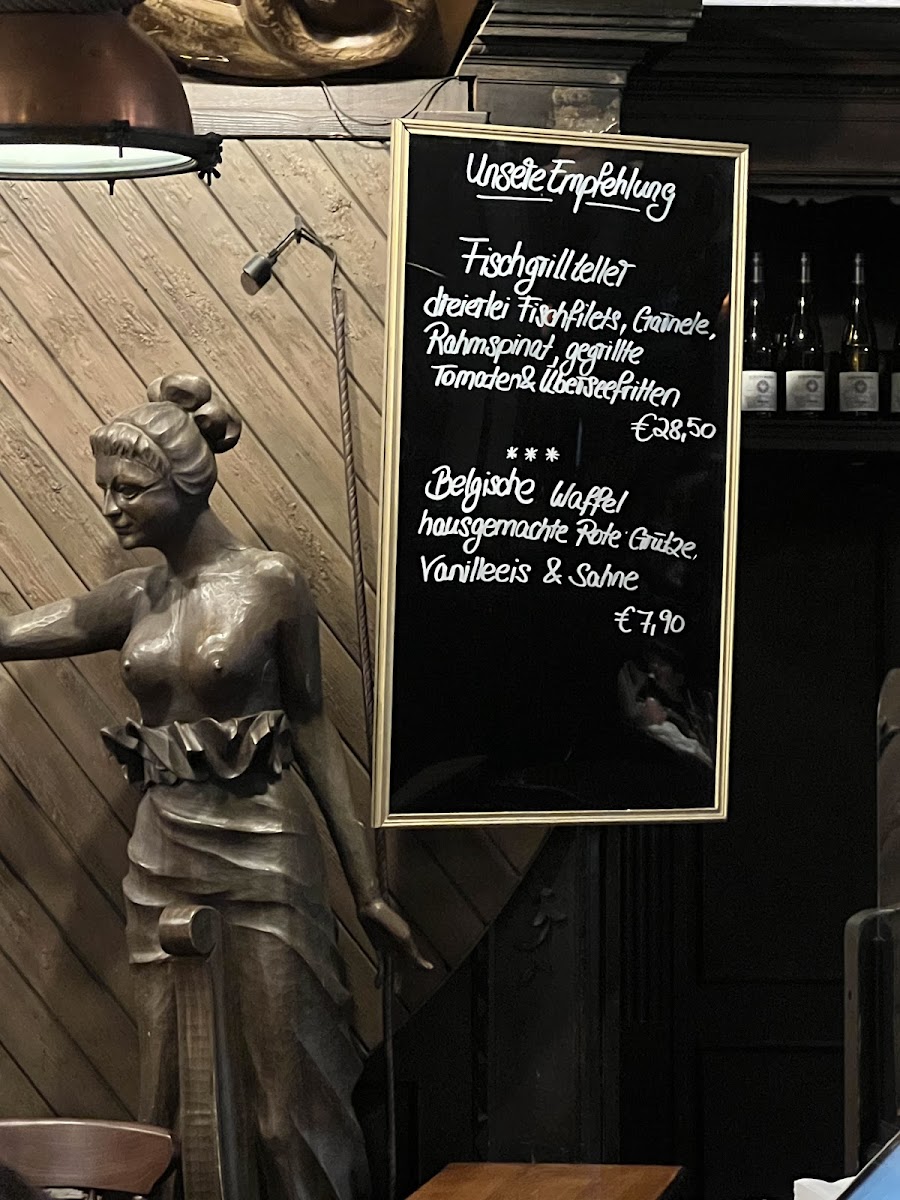 Unsere Empfehlung
Fischgrillteller
dreierlei Fischfilets, Garnele,
Rahmspinat, gegrillte
Tomaten & Überseefritten
€28,50
***
Belgische Waffel
hausgemachte Rote Grütze,
Vanilleeis & Sahne
€7,90